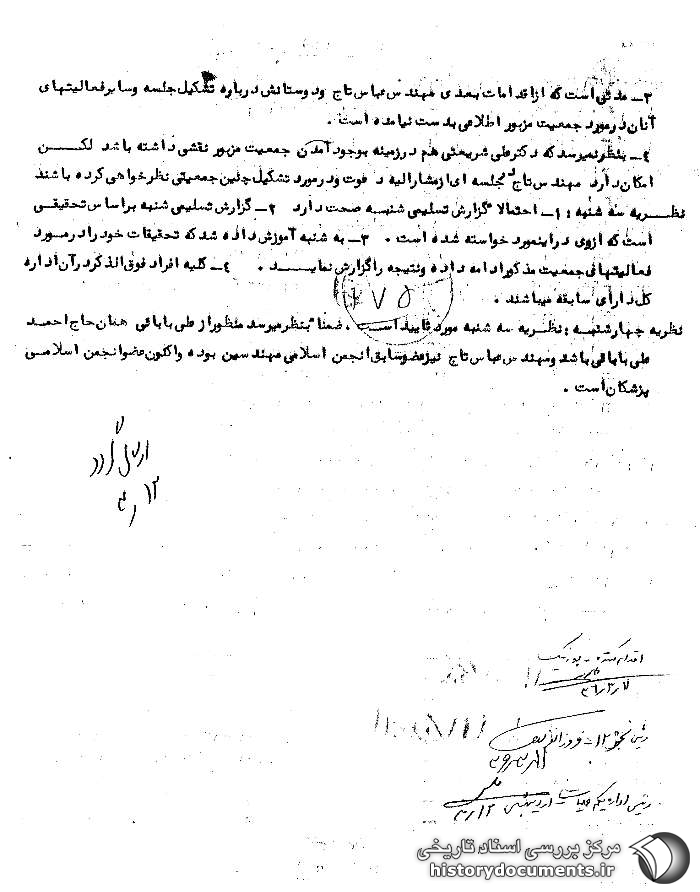 ۳ـ مدتی است که از اقدامات بعدی مهندس عباس تاج و دوستانش درباره تشکیل جلسه و سایر فعالیتهای
آنان در مورد جمعیت مزبور اطلاعی بدست نیامده است .
٤ـ بنظر نمیرسد که دکتر علی شریعتی هم در زمینه بوجود آمدن جمعیت مزبور نقشی داشته باشد لکن
امکان دارد مهندس تاج در جلسه ای از مشارالیه دعوت و در مورد تشکیل چنین جمعیتی نظرخواهی کرده باشند
نظریه سه شنبه : ۱ـ احتمالا" گزارش تسلیمی شنبه صحت دارد ۲ـ گزارش تسلیمی شنبه بر اساس تحقیقی
است که از وی در اینمورد خواسته شده است . ۳ـ به شنبه آموزش داده شد که تحقیقات خود را در مورد
فعالیتهای جمعیت مذکور ادامه داده و نتیجه را گزارش نماید . ٤ـ کلیه افراد فوق الذکر در آن اداره
کل دارای سابقه میباشند .
۷۵
نظریه چهارشنبه : نظریه سه شنبه مورد تایید است . ضمنا" بنظر میرسد منظور از علی بابائی همان حاج احمد
علی بابائی باشد و مهندس عباس تاج نیز عضو سابق انجمن اسلامی مهندسین بوده و اکنون عضو انجمن اسلامی
پزشکان است .
ارسال گردد
۳٫۱۲
اقدام کننده -
۳۶٫۳٫۷
رئیس بخش ۳۱۲ -
رئیس اداره یکم عملیات -
۳٫۱۲
مرکز بررسی اسناد تاریخی
historydocuments.ir